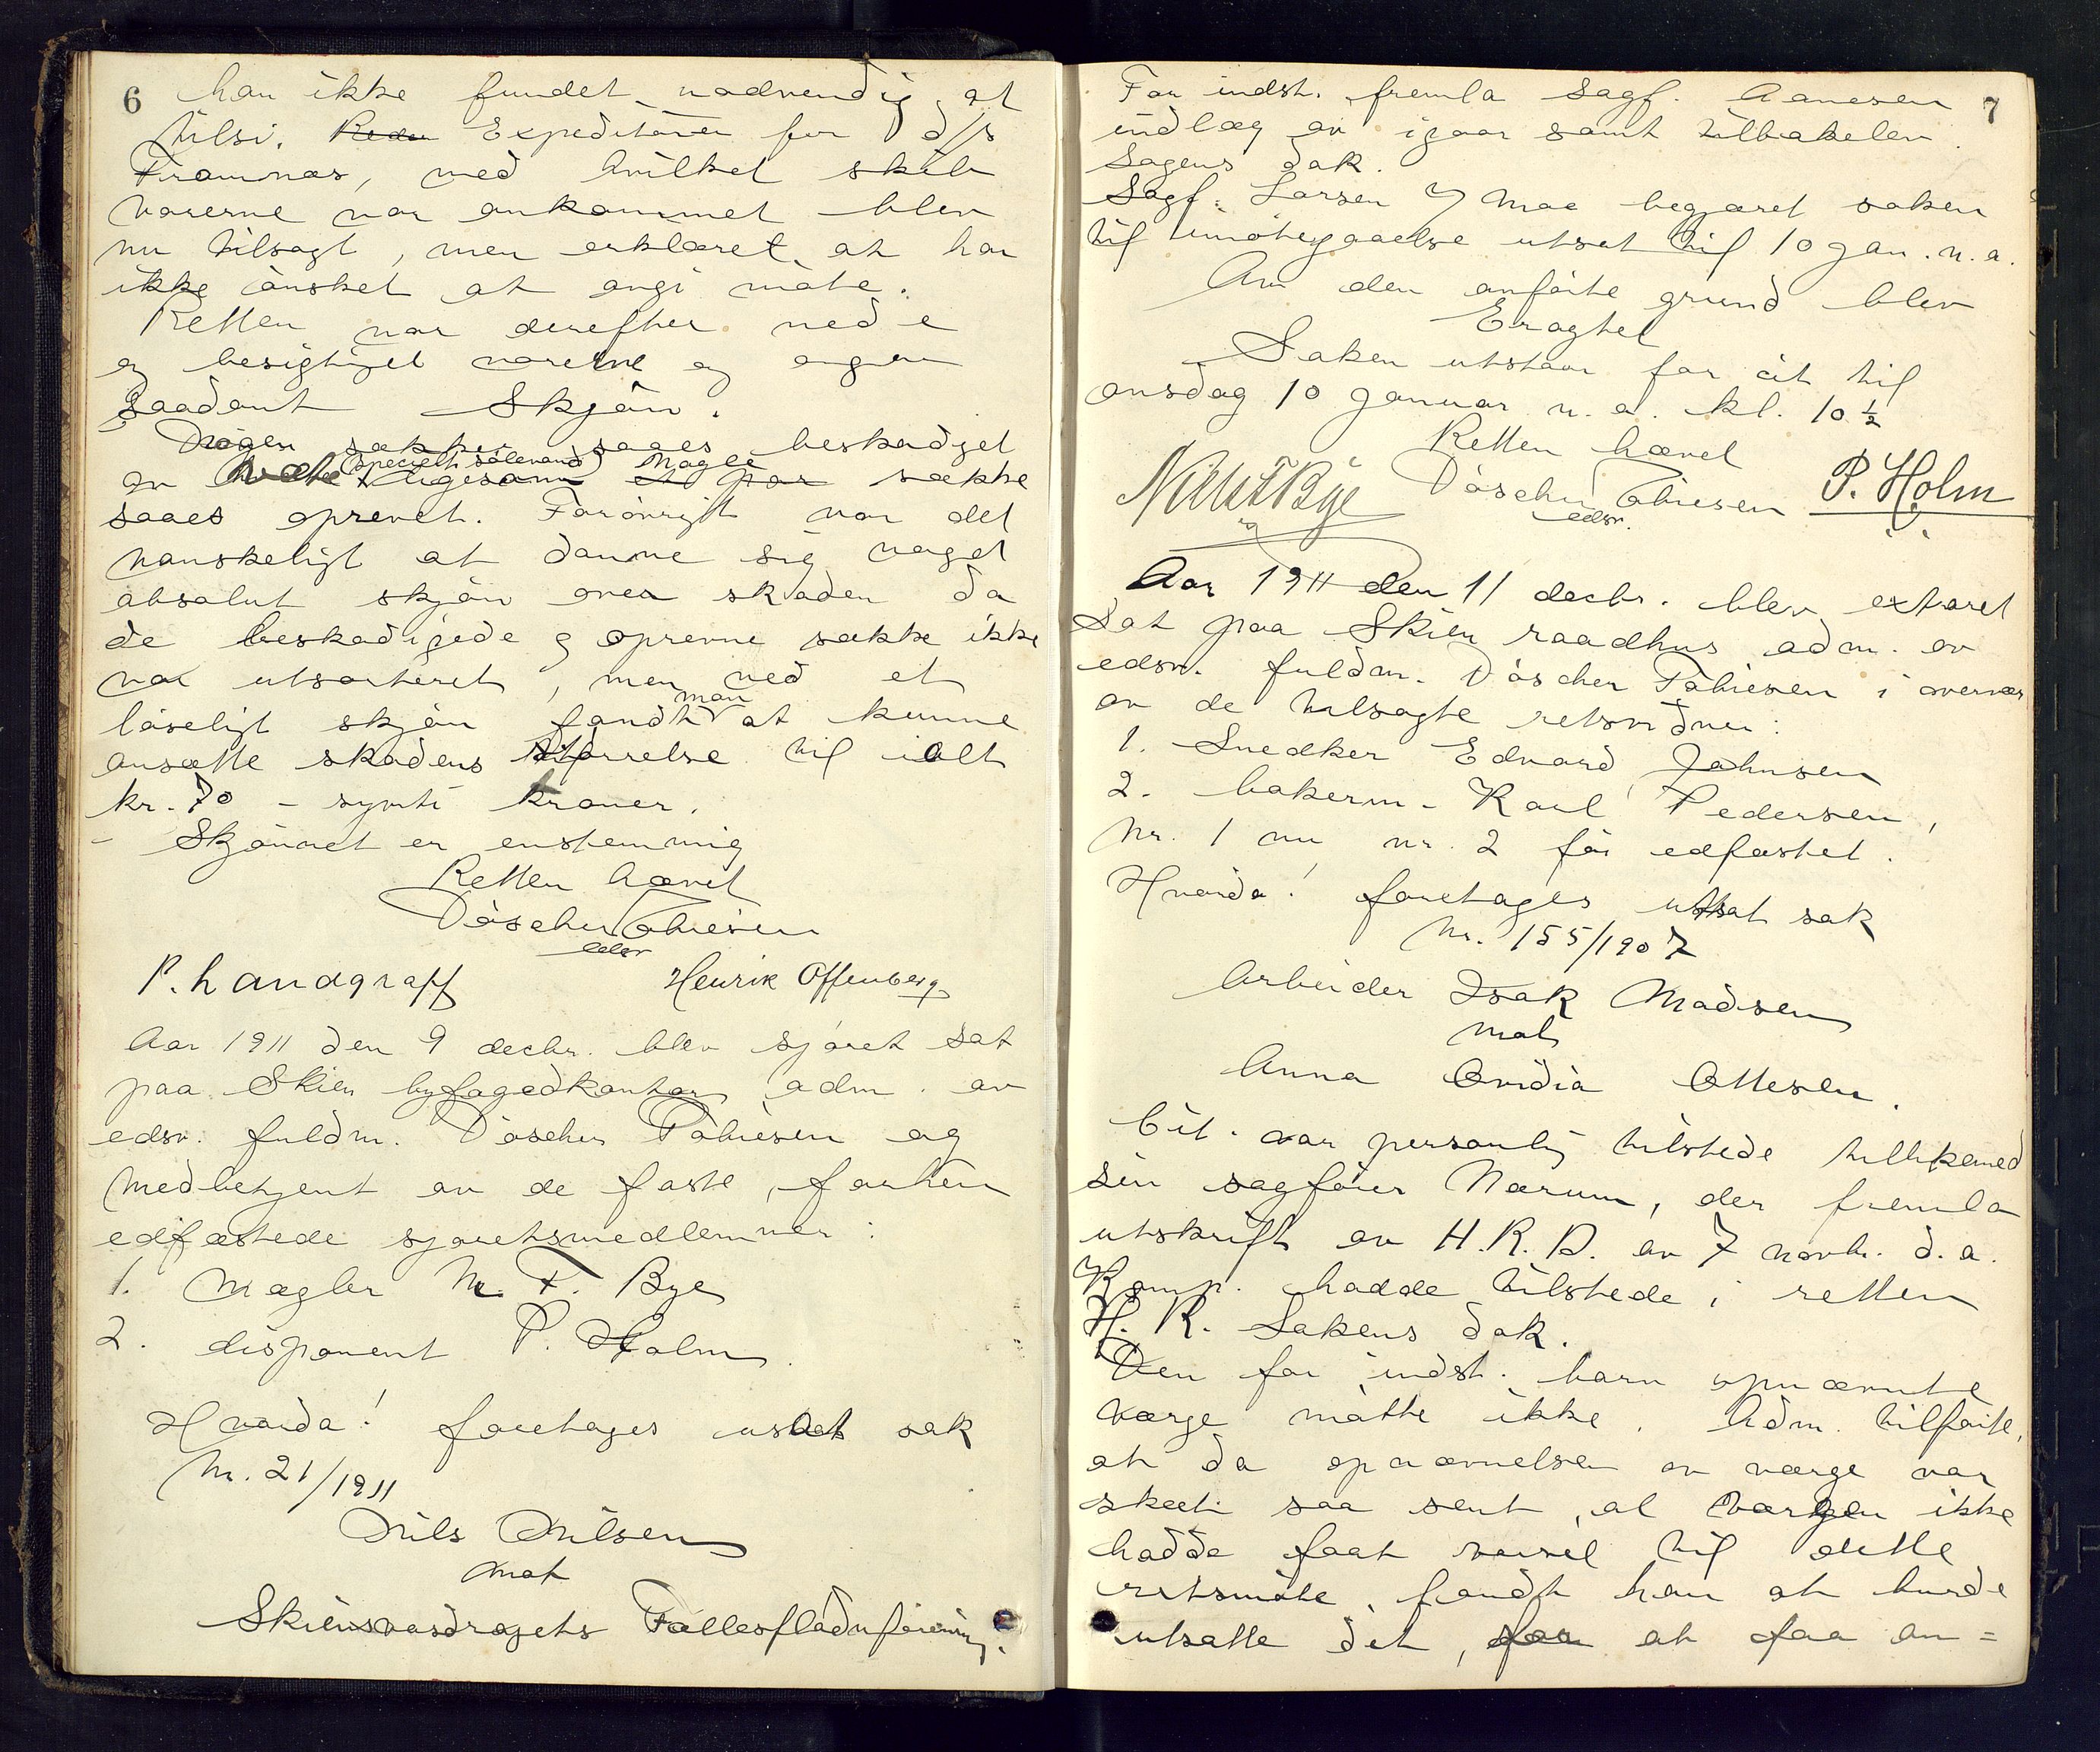 6
han ikke fundet nødvendig at
tilsi. Reder Expeditøren for d/s
Framnæs, med hvilket skib
varerne var ankommet blev
nu tilsagt, men erklæret at han
ikke ønsket at angi møte.
Retten var derefter nede
og besigtiget varerne og avgav
saadant Skjøn.
Nogen sækker saaes beskadget
av væte (specielt sølevand) Ligesom et par Nogle sække
saaes oprevet. Forøvrigt var det
vanskeligt at danne sig noget
absolut skjøn over skaden da
de beskadigede og oprevne sække ikke
var utsorteret, men ved et
løseligt skjøn fandt man at kunne
ansætte skadens størrelse til ialt
kr. 70 - sytti kroner.
- Skjønnet er enstemmig
Retten hævet
Döscher Tobiesen
edsv
P. Landgraff Henrik Offenberg
Aar 1911 den 9 decbr. blev sjøret sat
paa Skien byfogedkontor adm. av
edsv. fuldm. Döscher Tobiesen og
medbetjent av de faste, forhen
edfæstede sjøretsmedlemmer:
1. Mægler N. F. Bye
2. disponent P. Holm.
Hvorda! foretages utsat sak
Nr. 21/1911
Nils Nilsen
mot
Skiensvasdragets Fællesflødnforening.
7
For indst. fremla Sagf. Aanesen
indlæg av igaar samt tilbakelev.
Sagens dok.
Sagf. Larsen Moe begjæret saken
til imøtegaaelse utsat til 10 jan. n. a.
Av den anførte grund blev
Eragtet
Saken utstaar for sit til
onsdag 10 januar n. a. kl. 10 1/2
Retten hævet
Nils F Bye Döscher Tobiesen P. Holm
edsv.
Aar 1911 den 11 decbr. blev extraret
sat paa Skien raadhus adm. av
edsv. fuldm. Döscher Tobiesen i overvær
av de tilsagte retsvidner:
1. Snedker Edvard Johnsen
2. bakerm. Karl Pedersen,
Nr. 1 nu nr. 2 før edfæstet.
Hvorda! foretages utsat sak
Nr. 155/1907
Arbeider Isak Madsen
mot
Anna Ovidia Ottesen.
Cit. var personlig tilstede tillikemed
sin sagfører Nærum, der fremla
utskrift av H.R.D. av 7 novbr. d. a.
Komp. hadde tilstede i retten
H. R. Sakens dok.
Den for indst. barn opnævnte
værge møtte ikke. Adm. tilførte,
at da opnævnelsen av værge var
skeet saa sent, at værgen ikke
hadde faat varsel til dette
retsmøte, fandt han at burde
utsætte det, for at faa an=